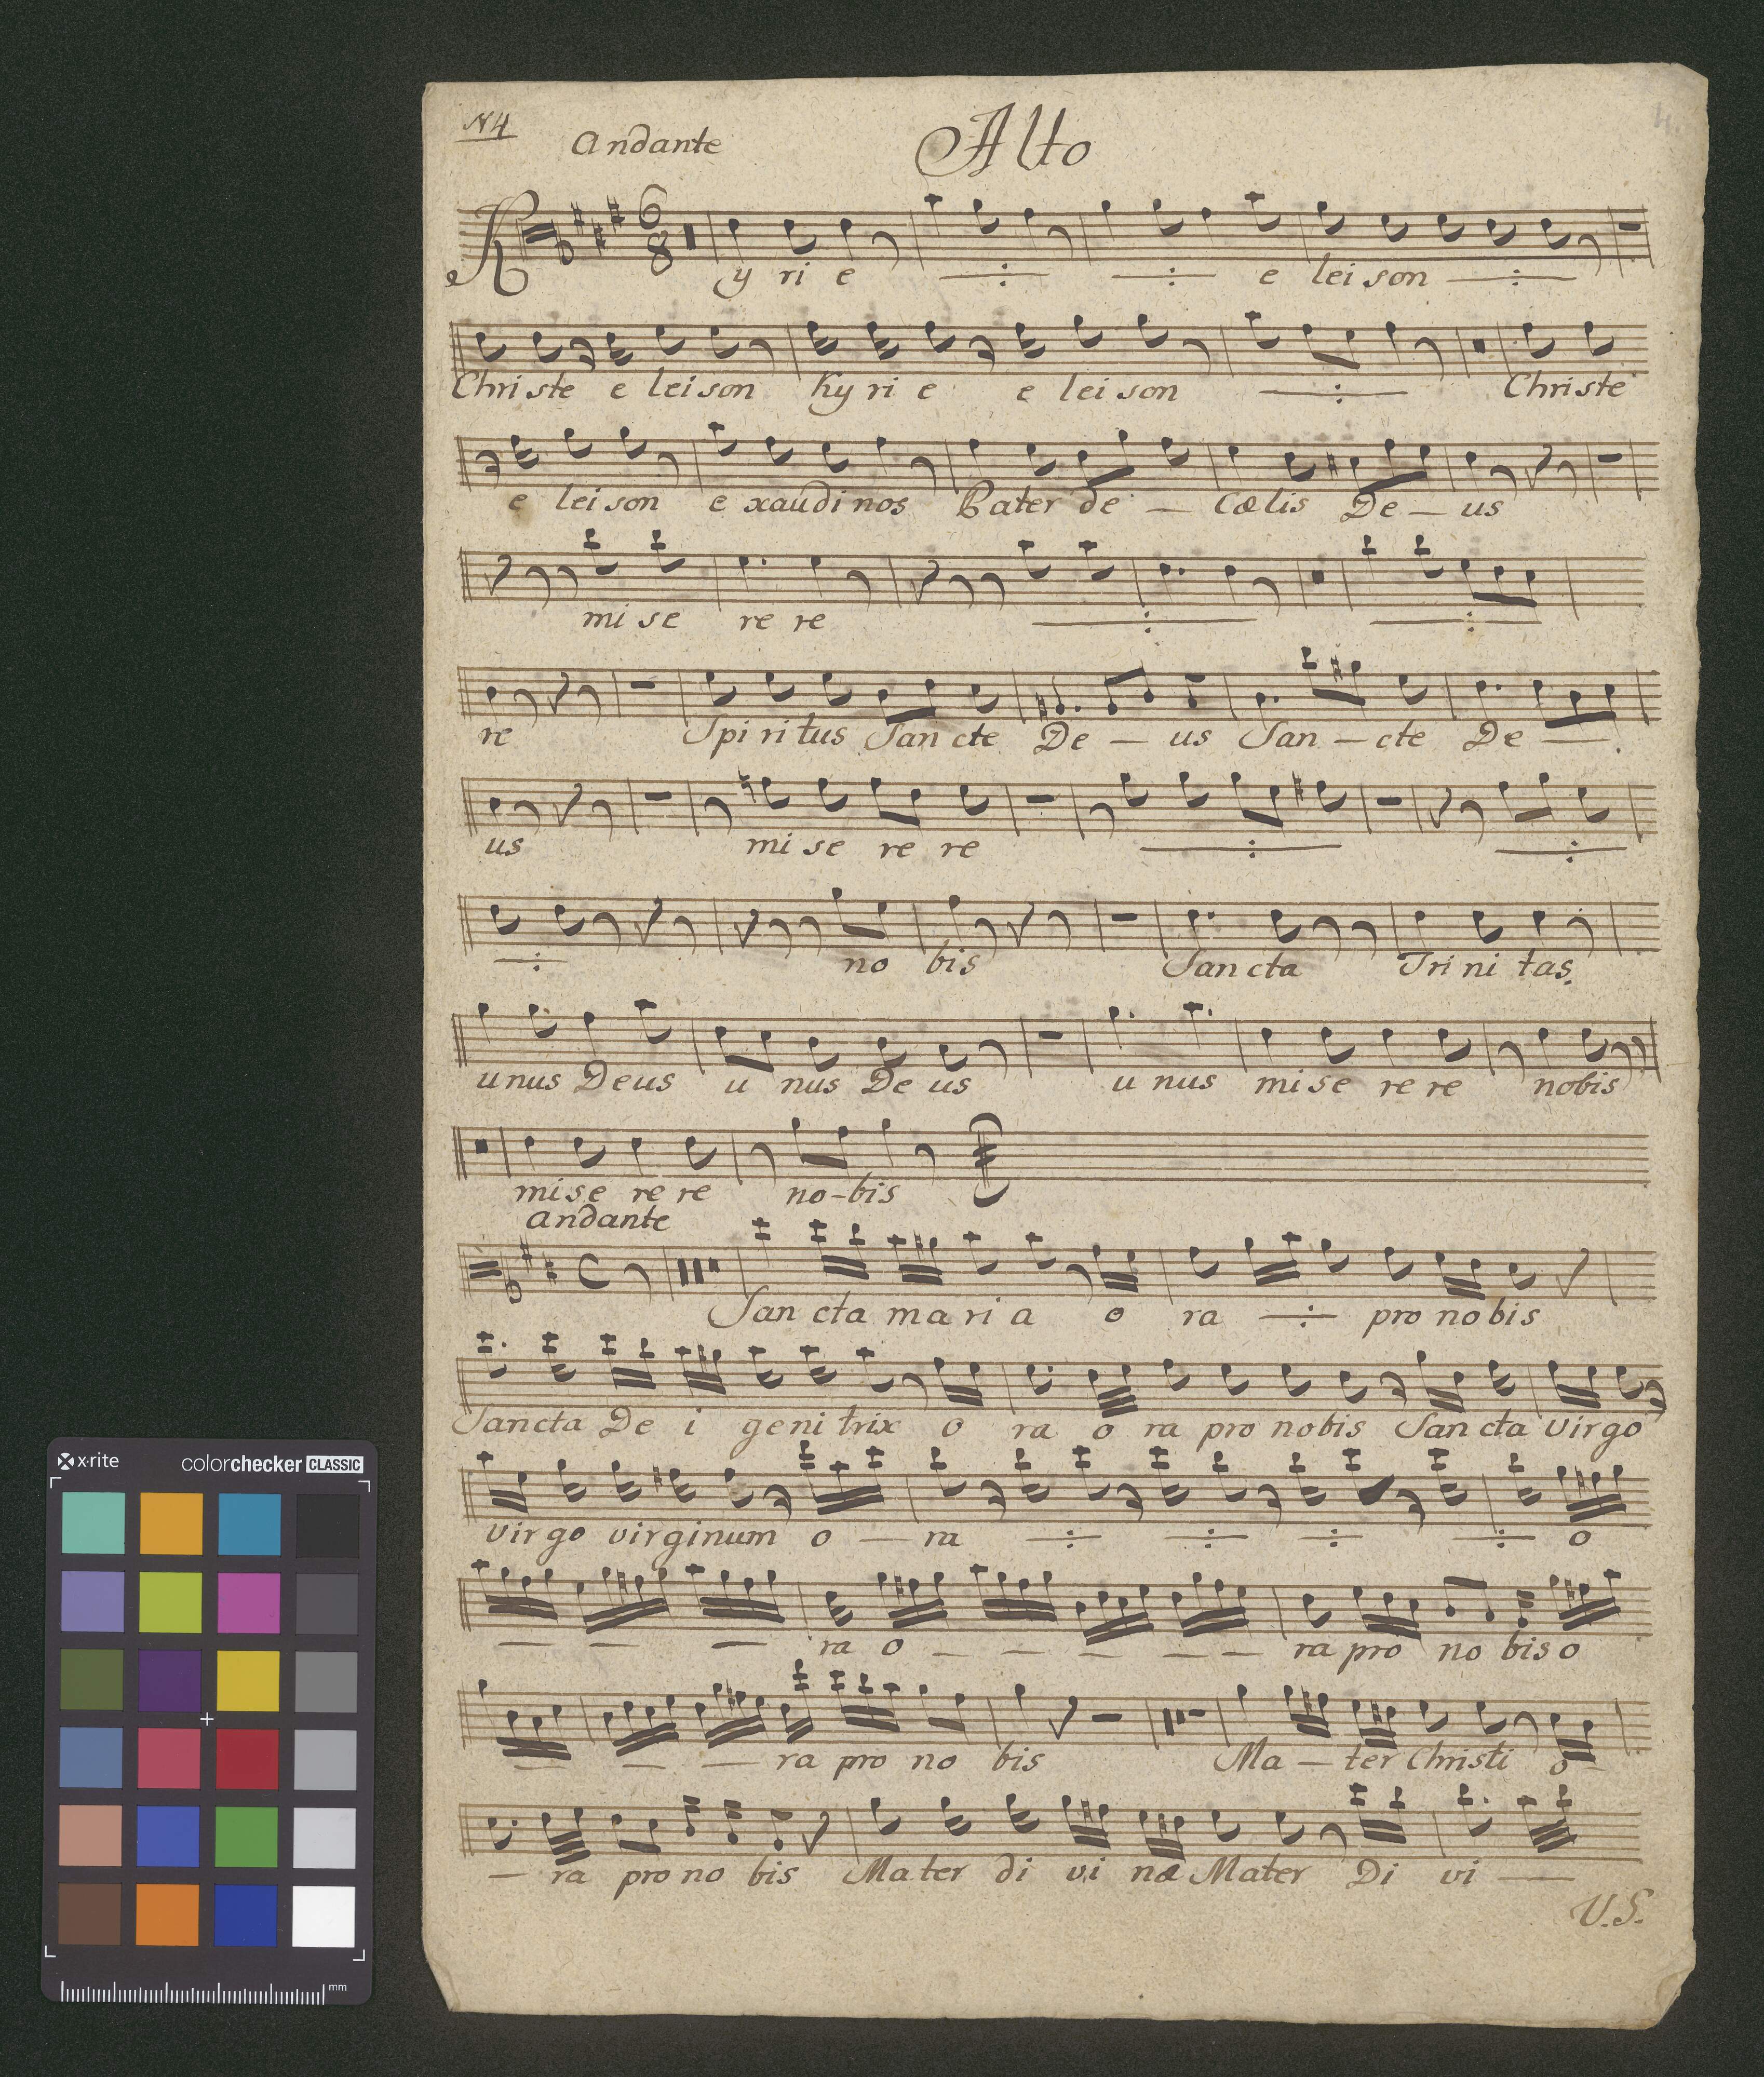 N4 Andante Alto
Ky ri e —:— —:— e lei son —:—
Christe e lei son Ky ri e e lei son —:— Christe
e lei son e xau di nos Pater de — Cælis De — us
mi se re re —:— —:—
re Spi ri tus San cte De — us San — cte De —
us mi se re re —:— —:—
—:— no bis San cta Tri ni tas.
unus Deus u nus De us u nus mi se re re nobis
mi se re re no-bis
Andante
San cta ma ri a o ra —:— pro no bis
Sancta De i ge ni trix o ra o ra pro nobis San cta Virgo
virgo virginum o — ra —:— —:— —:— —:— o
— — — ra o — — — — — ra pro no bis o
— — — ra pro no bis Ma — ter Christi o —
— ra pro no bis Ma ter di vi næ Mater Di vi —
V.S.
x·rite colorchecker CLASSIC
mm